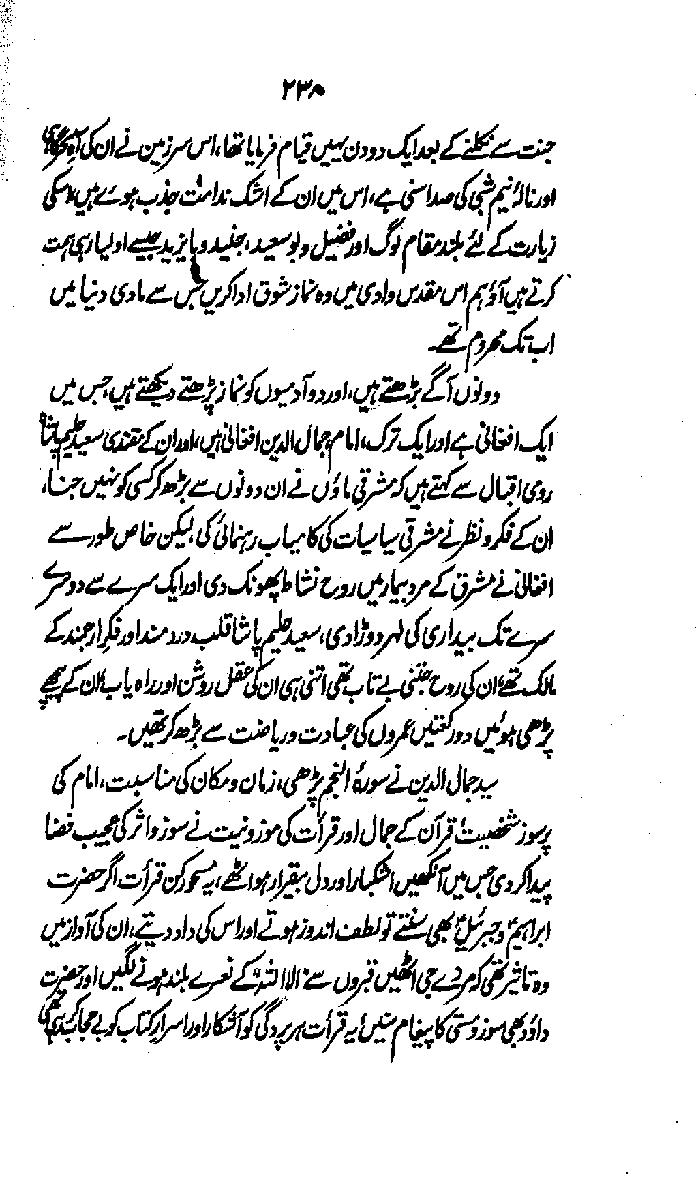 ۲۳۸
جنت سے نکلنے کے بعد ایک دو دن یہیں قیام فرمایا تھا، اس سرزمین نے ان کی آہ سحرگاہی
اور نالۂ نیم شبی کی صدا سنی ہے، اس میں ان کے اشک ندامت جذب ہوئے ہیں، اسکی
زیارت کے لئے بلند مقام لوگ اور فضیل و بوسعید، جنید و بایزید جیسے اولیا رہی ہمت
کرتے ہیں آؤ ہم اس مقدس وادی میں وہ نماز شوق ادا کریں جس سے مادی دنیا میں
اب تک محروم تھے۔
دونوں آگے بڑھتے ہیں، اور دو آدمیوں کو نماز پڑھتے دیکھتے ہیں، جس میں
ایک افغانی ہے اور ایک ترک، امام جمال الدین افغانی ہیں، اور ان کے مقتدی سعید حلیم پاشا
رومی اقبال سے کہتے ہیں کہ مشرقی ماؤں نے ان دونوں سے بڑھ کر کسی کو نہیں جنا،
ان کے فکر و نظر نے مشرقی سیاسیات کی کامیاب رہنمائی کی، لیکن خاص طور سے
افغانی نے مشرق کے مرد بیمار میں روح نشاط پھونک دی اور ایک سرے سے دوسرے
سرے تک بیداری کی لہر دوڑا دی، سعید حلیم پاشا قلب دردمند اور فکر ارجمند کے
مالک تھے، ان کی روح جتنی بے تاب تھی اتنی ہی ان کی عقل روشن اور راہ یاب، ان کے پیچھے
پڑھی ہوئیں دو رکعتیں عمروں کی عبادت و ریاضت سے بڑھ کر تھیں۔
سید جمال الدین نے سورۂ النجم پڑھی، زمان و مکان کی مناسبت، امام کی
پرسوز شخصیت، قرآن کے جمال اور قرأت کی موزونیت نے سوز و اثر کی عجیب فضا
پیدا کر دی جس میں آنکھیں اشکبار اور دل بیقرار ہو اٹھے، یہ مسحور کن قرأت اگر حضرت
ابراہیمؑ و جبرئیلؑ بھی سنتے تو لطف اندوز ہوتے اور اس کی داد دیتے، ان کی آواز میں
وہ تاثیر تھی کہ مردے جی اٹھیں، قبروں سے "الا اللہ" کے نعرے بلند ہونے لگیں اور حضرت
داؤد بھی سوز و مستی کا پیغام سنیں یہ قرأت ہر پردگی کو آشکار اور اسرار کتاب کو بے حجاب کر رہی تھی